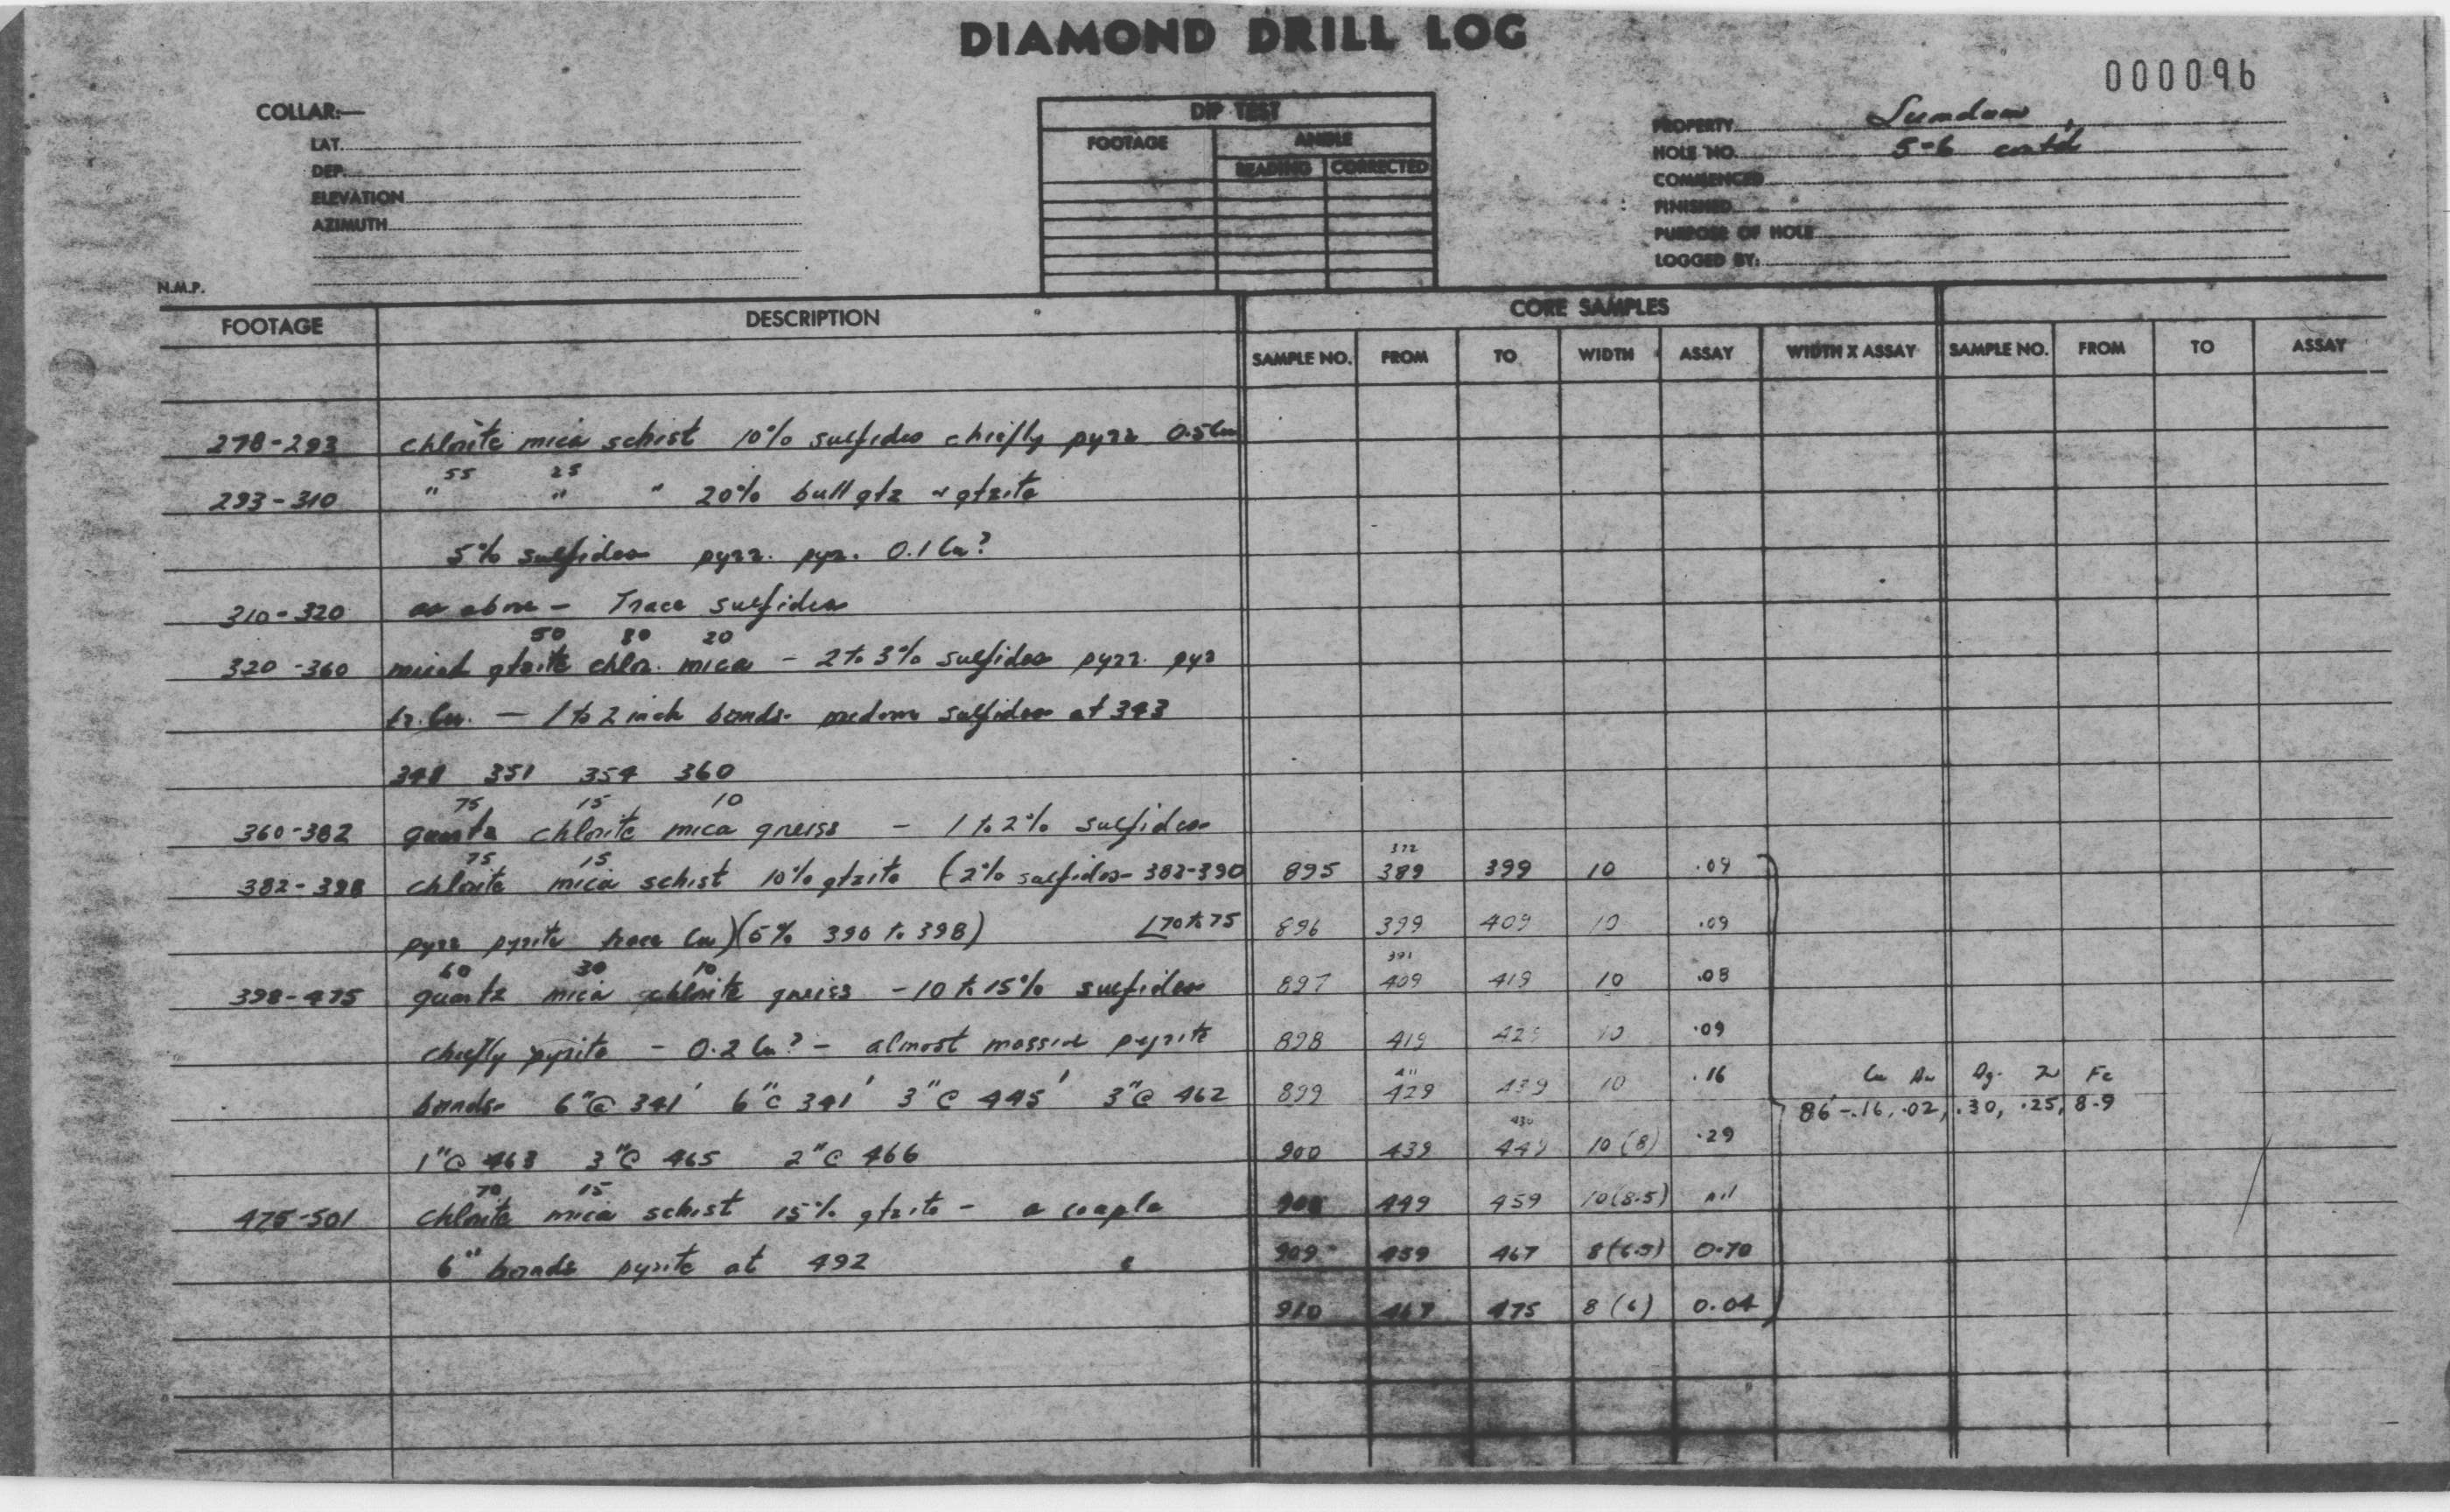 DIAMOND DRILL LOG
000096
COLLAR:—
LAT.
DEP.
ELEVATION
AZIMUTH
N.M.P.
DIP TEST
FOOTAGE ANGLE
READING CORRECTED
PROPERTY
HOLE NO. S-6 cont'd
COMMENCED
FINISHED
PURPOSE OF HOLE
LOGGED BY:
FOOTAGE DESCRIPTION CORE SAMPLES
SAMPLE NO. FROM TO WIDTH ASSAY WIDTH X ASSAY SAMPLE NO. FROM TO ASSAY
278-293 chlorite mica schist 10% sulfides chiefly pyrr 0.5 Cu
55 25
293-310 " " " 20% bull qtz & qtzite
5% sulfides pyrr. pyr. 0.1 Cu?
310-320 as above - Trace sulfides
50 80 20
320-360 mixed qtzite chlor. mica - 2 to 3% sulfides pyrr. pyr
tr. Cu. - 1 to 2 inch bands predom sulfides at 343
348 351 354 360
75 15 10
360-382 quartz chlorite mica gneiss - 1 to 2% sulfides
75 15 372
382-398 chlorite mica schist 10% qtzite (2% sulfides 382-390 895 389 399 10 .09
pyrr pyrite trace Cu) (5% 390 to 398) ∠70 to 75 896 399 409 10 .09
60 30 10 391
398-475 quartz mica chlorite gneiss - 10 to 15% sulfides 897 409 419 10 .08
chiefly pyrite - 0.2 Cu? - almost massive pyrite 898 419 429 10 .09
411 Cu Au Ag. Zn Fe
bands 6"@ 341' 6"@ 341' 3"@ 445' 3"@ 462 899 429 439 10 .16 86'-.16, .02, .30, .25, 8.9
430
1"@ 463 3"@ 465 2"@ 466 900 439 449 10 (8) .29
70 15
475-501 chlorite mica schist 15% qtzite - a couple 449 459 10 (8.5) nil
6" bands pyrite at 492 909 459 467 8 (6.5) 0.70
910 467 475 8 (6) 0.04